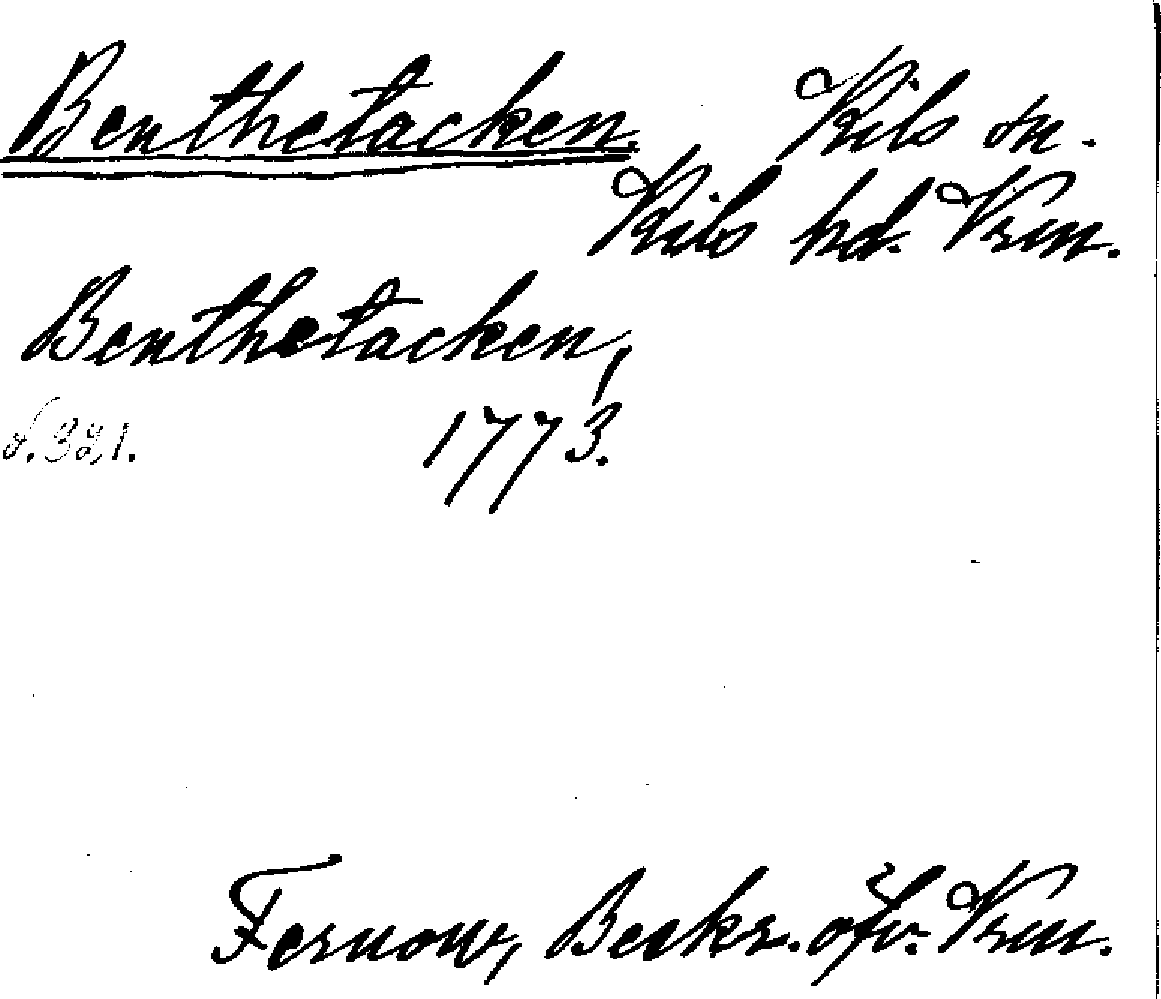 Benthetacken. Kils sn.
Kils hd. Vrm.
Benthetacken,
s. 321. 1773.
Fernow, Beskr. öfv. Vrm.